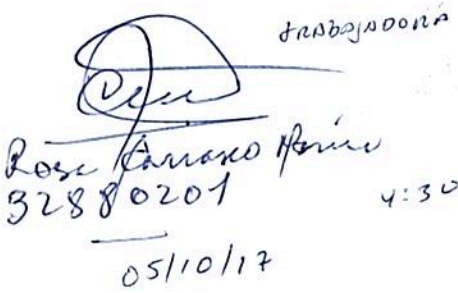 TRABAJADORA
Rosa Carrasco
32880201
4:30
05/10/17